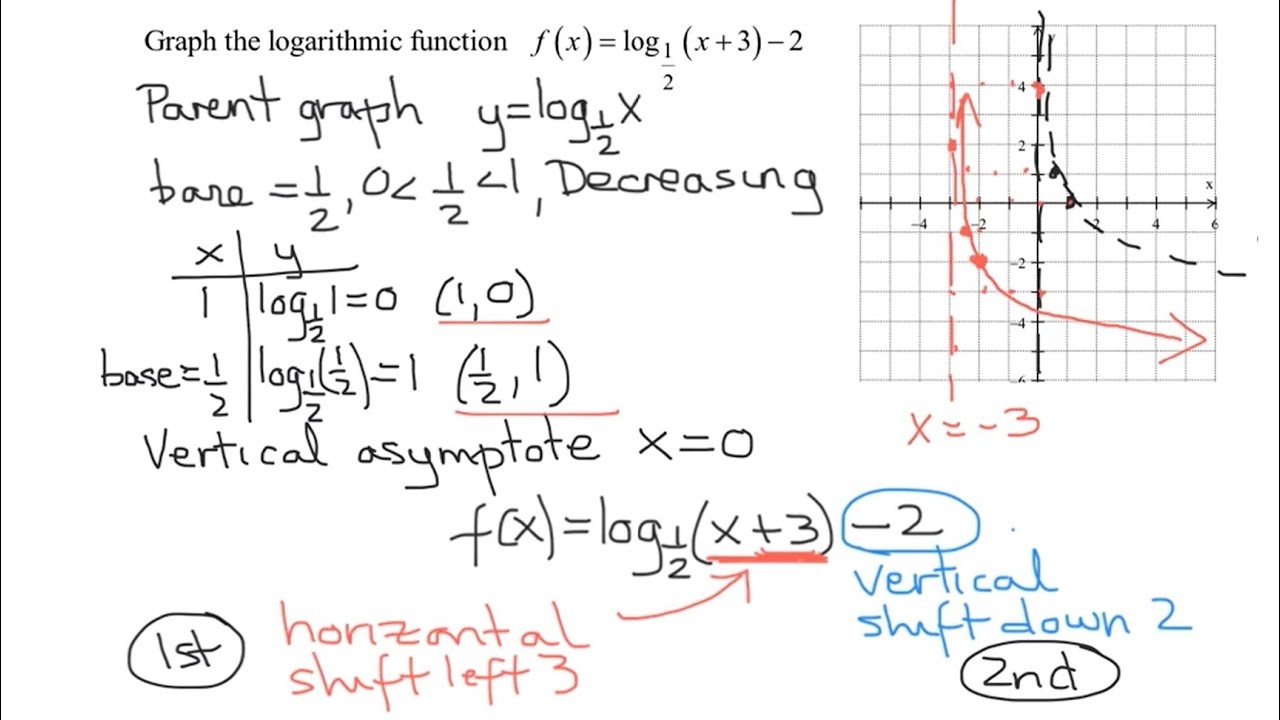 Graph the logarithmic function f(x) = log_{1/2}(x+3) − 2
Parent graph y=log_{1/2} x
base = 1/2, 0 < 1/2 < 1, Decreasing
x | y
1 | log_{1/2} 1 = 0 (1,0)
base = 1/2 | log_{1/2}(1/2) = 1 (1/2, 1)
Vertical asymptote x=0
f(x) = log_{1/2}(x+3) −2
1st horizontal shift left 3
vertical
shift down 2
2nd
4
2
x
−4 −2 2 4 6
−2
−4
−6
x = −3